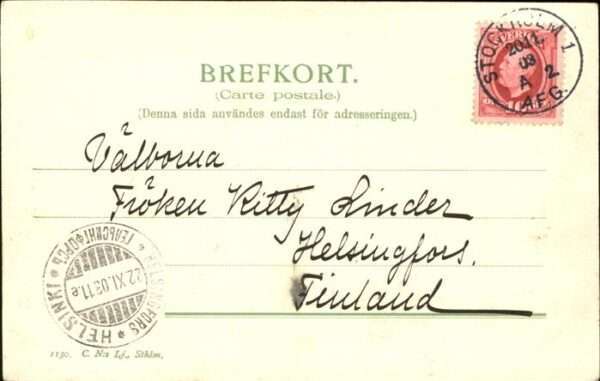 BREFKORT.
(Carte postale.)
(Denna sida användes endast för adresseringen.)
STOCKHOLM 1
20.11.
03
A 2
AFG.
SVERIGE
Välborna
Fröken Kitty Linder
Helsingfors.
Finland
HELSINGFORS
ГЕЛЬСИНГФОРСЪ
HELSINKI
22.XI.03.11.e
1130. C. N:s Lj., Sthlm,